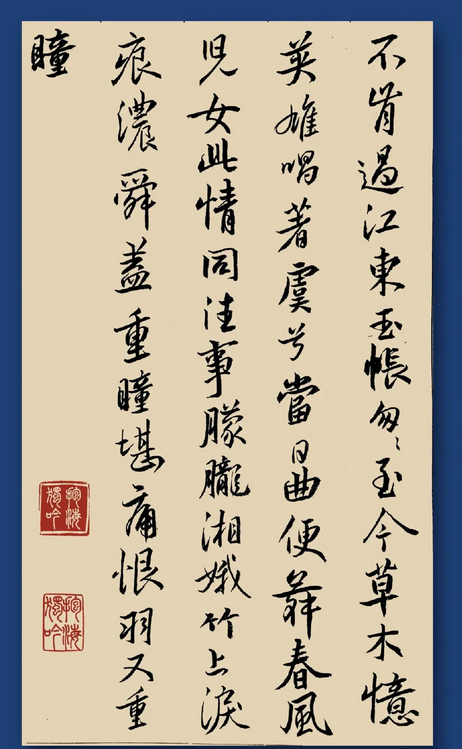 不肯過江東玉帳匆々至今草木憶
英雄唱著虞兮當日曲便舞春風
兒女此情同往事朦朧湘娥竹上淚
痕濃舜蓋重瞳堪痛恨羽又重
瞳